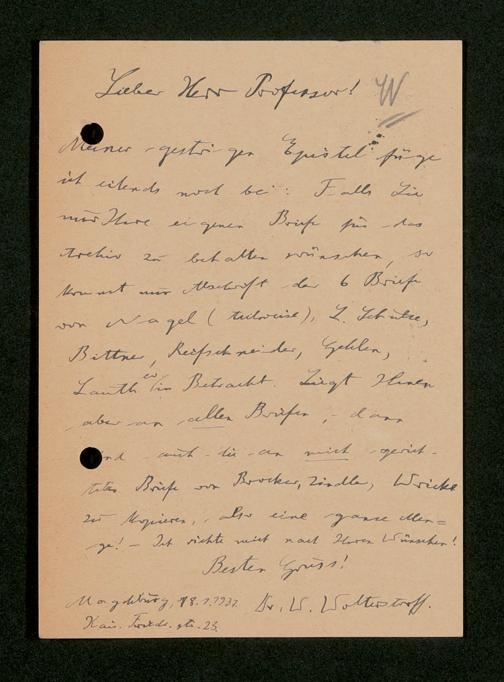 Lieber Herr Professor! W
Meiner gestrigen Epistel füge
ich eilends noch bei: Falls Sie
nur Ihre eigenen Briefe für das
Archiv zu behalten wünschen, so
kommt nur Abschrift der 6 Briefe
von Nagel (teilweise), L. Schulze,
Bittner, Reifschneider, Gehlen,
Lauth in Betracht. Liegt Ihnen
aber an allen Briefen, dann
sind auch die an mich gerich-
teten Briefe von Brocker, Zindler, Wricke
zu kopieren, also eine ganze Men=
ge! – Ich richte mich nach Ihren Wünschen!
Besten Gruss!
Magdeburg, 18.1.1937. Dr. W. Wolterstorff.
Kais. Friedr. str. 23.